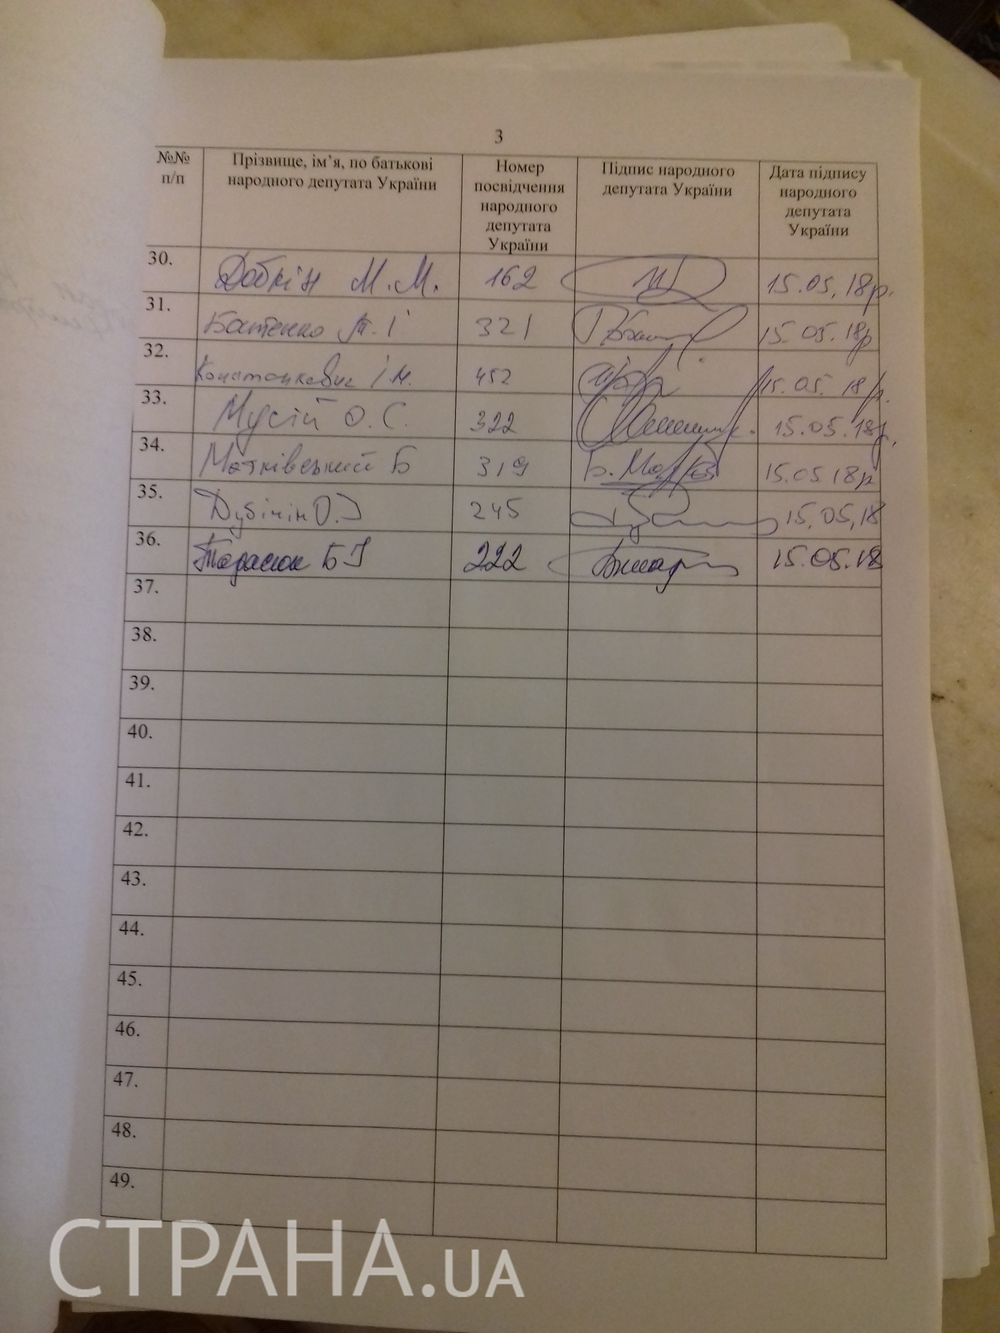 3
№№ п/п
Прізвище, ім’я, по батькові народного депутата України
Номер посвідчення народного депутата України
Підпис народного депутата України
Дата підпису народного депутата України
30. Добкін М.М. 162 15.05.18р.
31. 321 15.05.18р
32. 452 15.05.18р.
33. Мусій О.С. 322 15.05.18р.
34. Матківський Б 319 Б. 15.05.18р
35. Дубінін О.І 245 15.05.18
36. Тарасюк Б І 222 15.05.18
37.
38.
39.
40.
41.
42.
43.
44.
45.
46.
47.
48.
49.
СТРАНА.UA